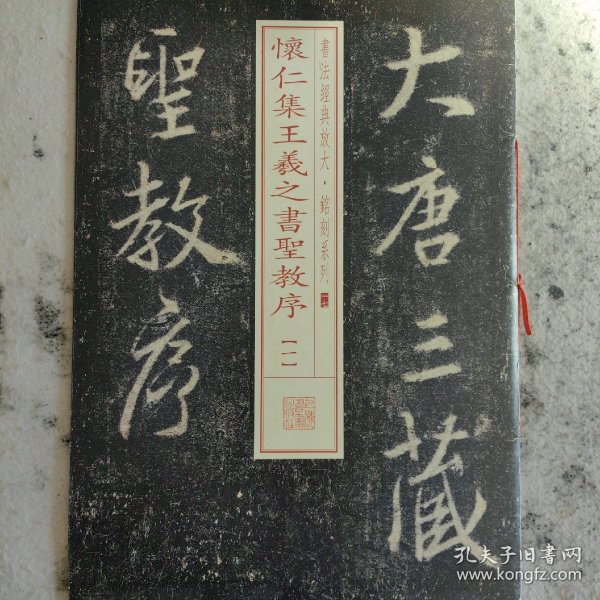 大唐三藏
聖教序
書法經典放大·銘刻系列 一七
懷仁集王羲之書聖教序【一】
孔夫子旧书网
www.kongfz.com